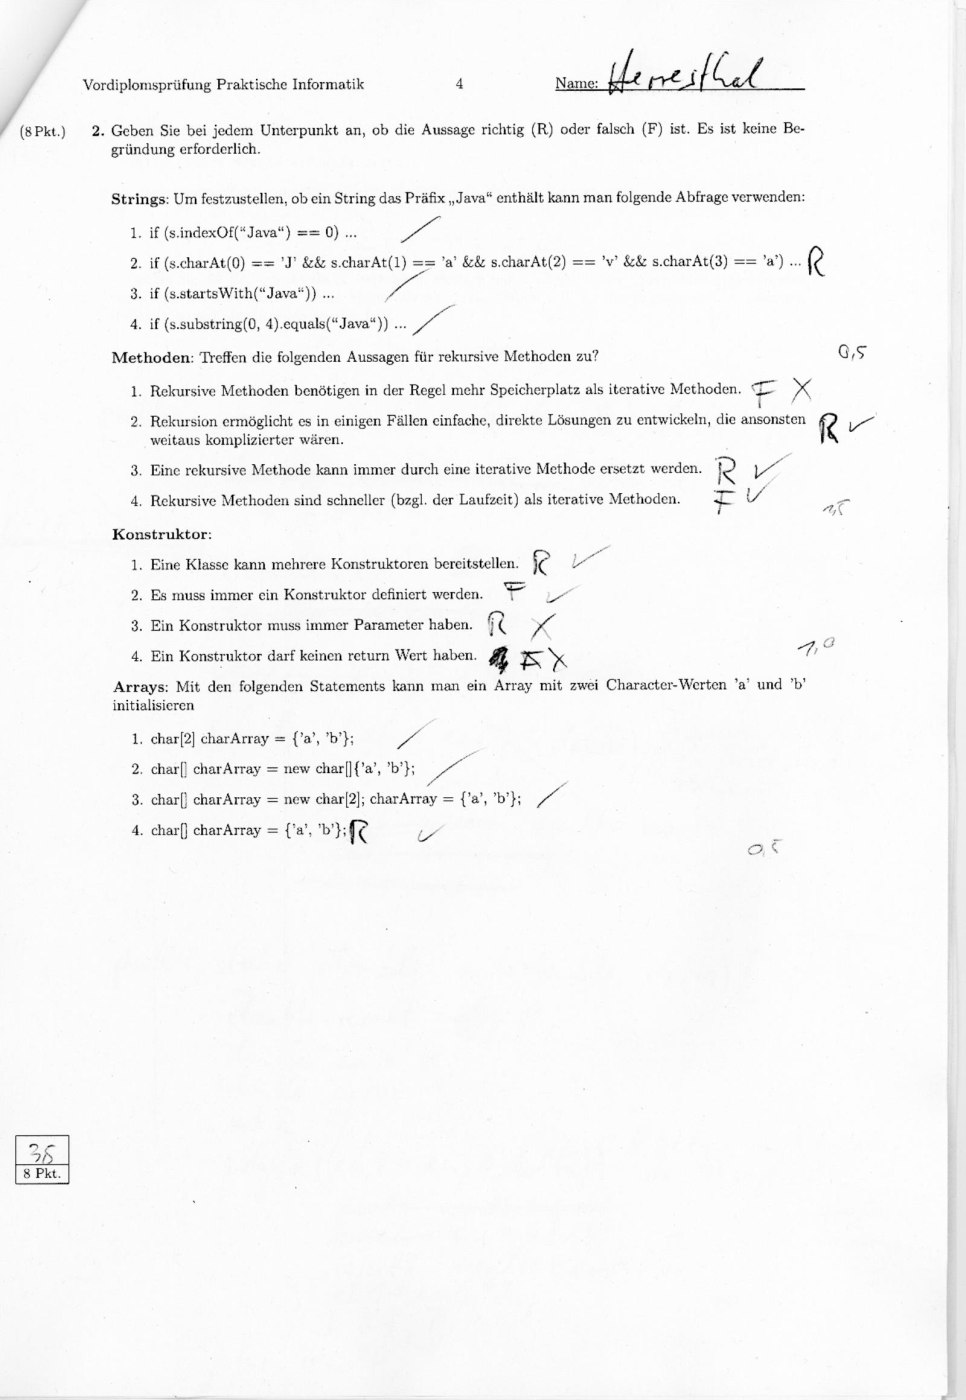 Vordiplomsprüfung Praktische Informatik 4 Name: Herresthal
(8 Pkt.) 2. Geben Sie bei jedem Unterpunkt an, ob die Aussage richtig (R) oder falsch (F) ist. Es ist keine Be-
gründung erforderlich.
Strings: Um festzustellen, ob ein String das Präfix „Java“ enthält kann man folgende Abfrage verwenden:
1. if (s.indexOf(“Java“) == 0) ...
2. if (s.charAt(0) == 'J' && s.charAt(1) == 'a' && s.charAt(2) == 'v' && s.charAt(3) == 'a') ... R
3. if (s.startsWith(“Java“)) ...
4. if (s.substring(0, 4).equals(“Java“)) ...
0,5
Methoden: Treffen die folgenden Aussagen für rekursive Methoden zu?
1. Rekursive Methoden benötigen in der Regel mehr Speicherplatz als iterative Methoden. F X
2. Rekursion ermöglicht es in einigen Fällen einfache, direkte Lösungen zu entwickeln, die ansonsten R ✓
weitaus komplizierter wären.
3. Eine rekursive Methode kann immer durch eine iterative Methode ersetzt werden. R ✓
4. Rekursive Methoden sind schneller (bzgl. der Laufzeit) als iterative Methoden. F ✓
1,5
Konstruktor:
1. Eine Klasse kann mehrere Konstruktoren bereitstellen. R ✓
2. Es muss immer ein Konstruktor definiert werden. F ✓
3. Ein Konstruktor muss immer Parameter haben. R X
4. Ein Konstruktor darf keinen return Wert haben. F X
1,0
Arrays: Mit den folgenden Statements kann man ein Array mit zwei Character-Werten 'a' und 'b'
initialisieren
1. char[2] charArray = {'a', 'b'};
2. char[] charArray = new char[]{'a', 'b'};
3. char[] charArray = new char[2]; charArray = {'a', 'b'};
4. char[] charArray = {'a', 'b'}; R ✓
0,5
35
8 Pkt.